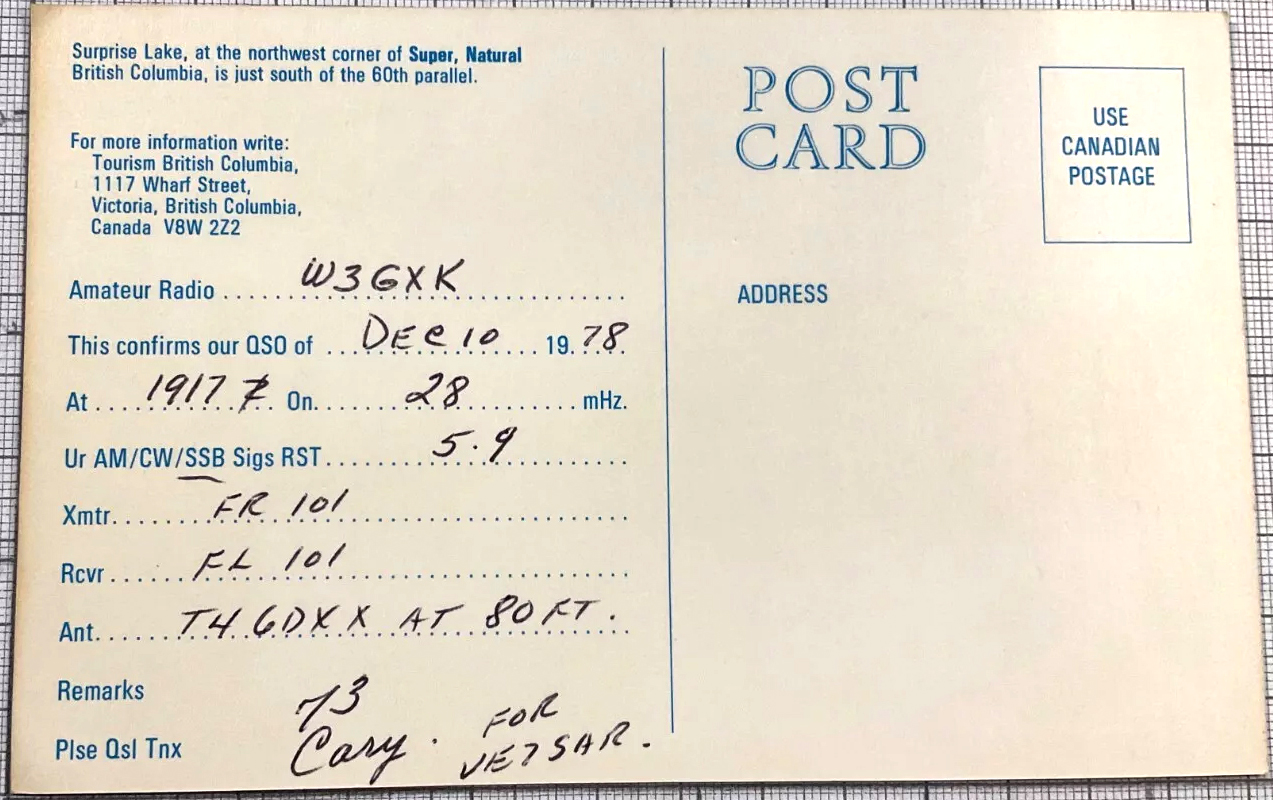 Surprise Lake, at the northwest corner of Super, Natural
British Columbia, is just south of the 60th parallel.
For more information write:
Tourism British Columbia,
1117 Wharf Street,
Victoria, British Columbia,
Canada V8W 2Z2
Amateur Radio W3GXK
This confirms our QSO of DEC 10 1978
At 1917 Z On 28 mHz.
Ur AM/CW/SSB Sigs RST 5.9
Xmtr. FR 101
Rcvr FL 101
Ant. T4 6DXX AT 80 FT.
Remarks 73
Plse Qsl Tnx Cary. FOR
VE7SAR.
POST
CARD
USE
CANADIAN
POSTAGE
ADDRESS